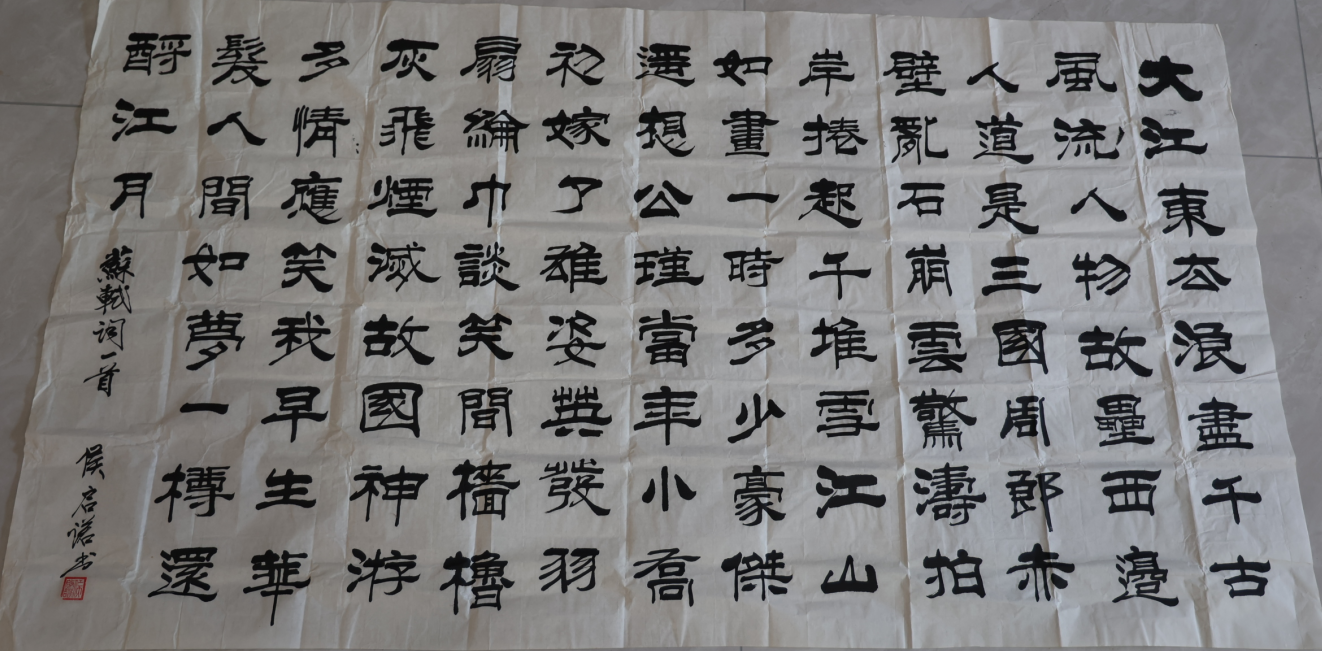 大江東去浪盡千古
風流人物故壘西邊
人道是三國周郎赤
壁亂石崩雲驚濤拍
岸捲起千堆雪江山
如畫一時多少豪傑
遥想公瑾當年小喬
初嫁了雄姿英發羽
扇綸巾談笑間檣櫓
灰飛煙滅故國神游
多情應笑我早生華
髮人間如夢一樽還
酹江月
蘇軾词一首
侯启诺书